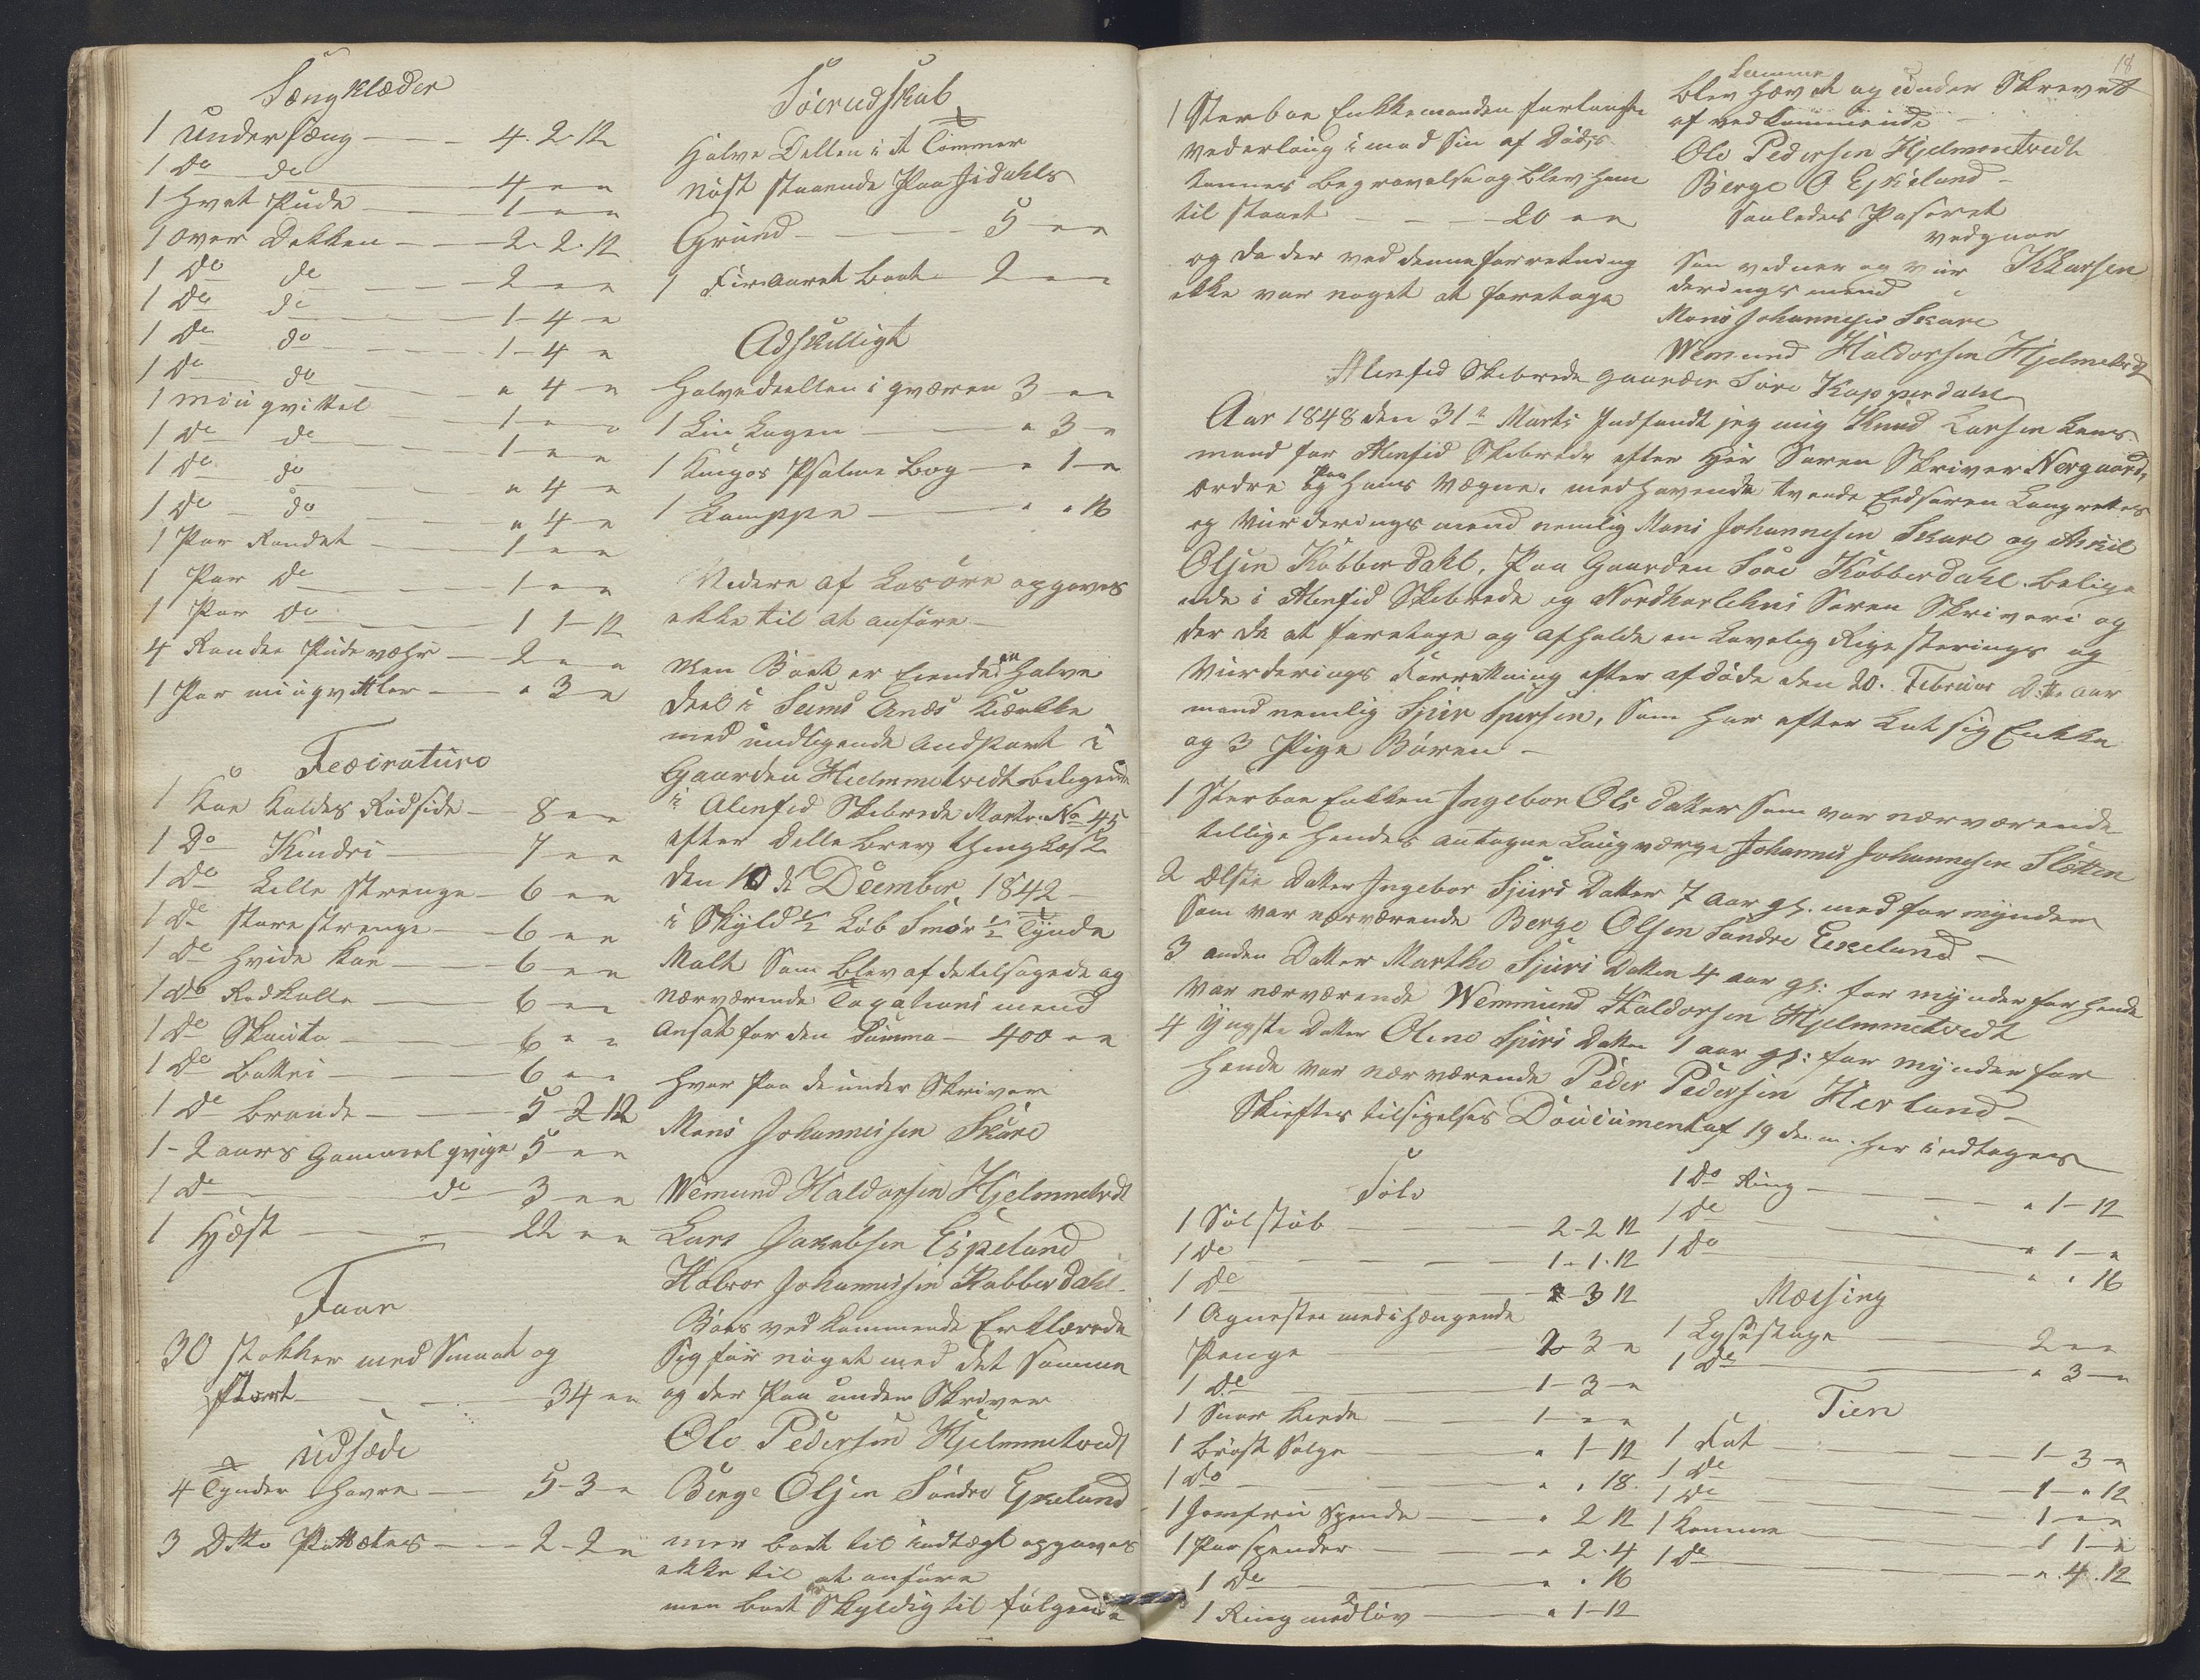 Sængklæder
1 Undersæng — 4. 2. 12
1 do do — 4 " "
1 hvet Pude — 1 " "
1 over Dekken — 2. 2. 12
1 do do — 2 " "
1 do do — 1 - 4 "
1 do do — 1 - 4 "
1 do do — " 4 "
1 miugvittel — 1 " "
1 do do — 1 " "
1 do do — " 4 "
1 do do — " 4 "
1 Par Randet — 1 " "
1 Par do — 1 " "
1 Par do — 1 1 - 12
4 Randee Pudevæhr — 2 " "
1 Par miugvitler — " 3 "
Feæiraturo
1 Koe Kaldes Rødside — 8 " "
1 Do Kindri — 7 " "
1 do Lille Strenge — 6 " "
1 do store strenge — 6 " "
1 do Hvide Koe — 6 " "
1 do Rødkolle — 6 " "
1 do Skauta — 6 " "
1 do Bottni — 6 " "
1 do Brande — 5 - 2 12
1 - 2 aars Gammel qvige 5 " "
1 do do — 3 " "
1 Hæst — 22 " "
Faar
30 stokker med Smaat og
stort — 34 " "
Udsæde
4 Tynder Havre — 5 - 3 "
3 Dtto Pottætes — 2 - 2 "
Söeredskab
Halve Dellen i et Tømmer
nøst staaende Paa Jidahls
Grund — 5 " "
1 Firaaret Baat — 2 " "
Adskilligt
Halvedeellen i qværen 3 " "
1 Lin Lagen — " 3 "
1 Kingos Psalme Bog — " 1 "
1 Lamppe — " " 16
Videre af Løsøre opgaves
ikke til at anføre —
Men Boet er Eiende en halve
deel i Seims Anes Kierkke
med undligende Andpart i
Gaarden Hielmmetvedt beligende
i Alenfid Skibrede Martr: No 45
efter Dellebrev thinglæst
den 10de Decmber 1842 —
i Skyld ½ Løb Smör ½ Tynde
Malt Som blev af de tilsagede og
nærværende Taxations mend
ansat for den Summa — 400 " "
Hvor Paa de under Skriver
Mons Johannesen Skare
Wemund Haldorsen Hjelmmetvedt
Lars Jakobsen Espeland
Halvor Johannesen Kobberdahl
Boes ved kommende Erklærede
Sig før nøget med det Samme
og der Paa under Skriver
Ole Pedersen Hjelmmetvedt
Børge Olsen Söndre Eskeland
men boet til indtægt opgaves
ikke til at anføre
men boet er Skyldig til følgende
18
1 Sterboe Enkkemanden forlangte
Vederlaug imod Sin af Døds
Konnes begravelse og blev ham
til staaet — 20 " "
og da der ved denne forretning
ikke var noget at foretage
Samme
blev Hævet og under Skrevet
af vedkommende —
Ole Pedersen Hjelmmetvedt
Børge O Eskeland —
Saaledes Paseret
vedgaar
KLarsen
Som vidner og vur
derings mend
Mons Johannesen Skare
Wemund Haldorsen Hjelmetvedt
Alenfid Skibrede gaarden Söre Kopperdahl
Aar 1848 den 31te Marts Indfandt jeg mig Knud Larsen Lens
mand for Alenfid Skibrede efter Hr: Soren Skriver Nergaards
ordre og Paa Hans Vægne, medhavende tvende Eedsoren Laugrettes
og Vurderings mend nemlig Mons Johannesen Skare og Askil
Olsen Kobberdahl, Paa Gaarden Söre Kobberdahl belige
nde i Alenfid Skibrede og Nordhorlehns Soren Skriveri og
der da at foretage og afholde en Lovelig Rigesterings og
Vurderings Forretning efter afdøde den 20. Februar d: aar
mand nemlig Sjur Sjursen, Som har efter Lat sig Enkke
og 3 Pige Bören —
1 Sterboe Enkken Ingebor Ols datter Som var nærværende
tillige hendes antagne Laugværge Johannes Johannesen Slotten
2 Elste Datter Ingebor Sjurs Datter 7 aar gl. med formynder
Som var nærværende Berge Olsen Söndre Eskeland —
3 anden Datter Marthe Sjurs datter 4 aar gl: for mynder for hende
var nærværende Wemmund Haldorsen Hjelmmetvedt
4 Yngste Datter Oline Sjurs datter 1 aar gl: for mynder for
hende var nærværende Peder Pedersen Herland —
Skieftes tilsigelses Doucument af 19 d. m. her indtages
Sölv
1 Sölstøb — 2 - 2 12
1 do — 1 - 1. 12
1 do — 3 12
1 Agneste med ihængende
Penge — 2 3 "
1 do — 1 - 3 "
1 Snor Kiede — 1 " "
1 Bröst Solge — " 1 - 12
1 do — " " 18
1 Jomfru Spende — " 2 12
1 Par spender — " 2. 4
1 do — " " 16
1 Ring med löv — " 1 - 12
1 do Ring — " 1 - 12
1 do — " 1 - "
1 do — " " 16
Messing
1 Lysestage — 2 " "
1 do — " 3 "
Tien
1 Fat — 1 - 3 "
1 do — 1 - " 12
1 do — 1 " "
1 Kanne — 1 1 "
1 do — " 4. 12